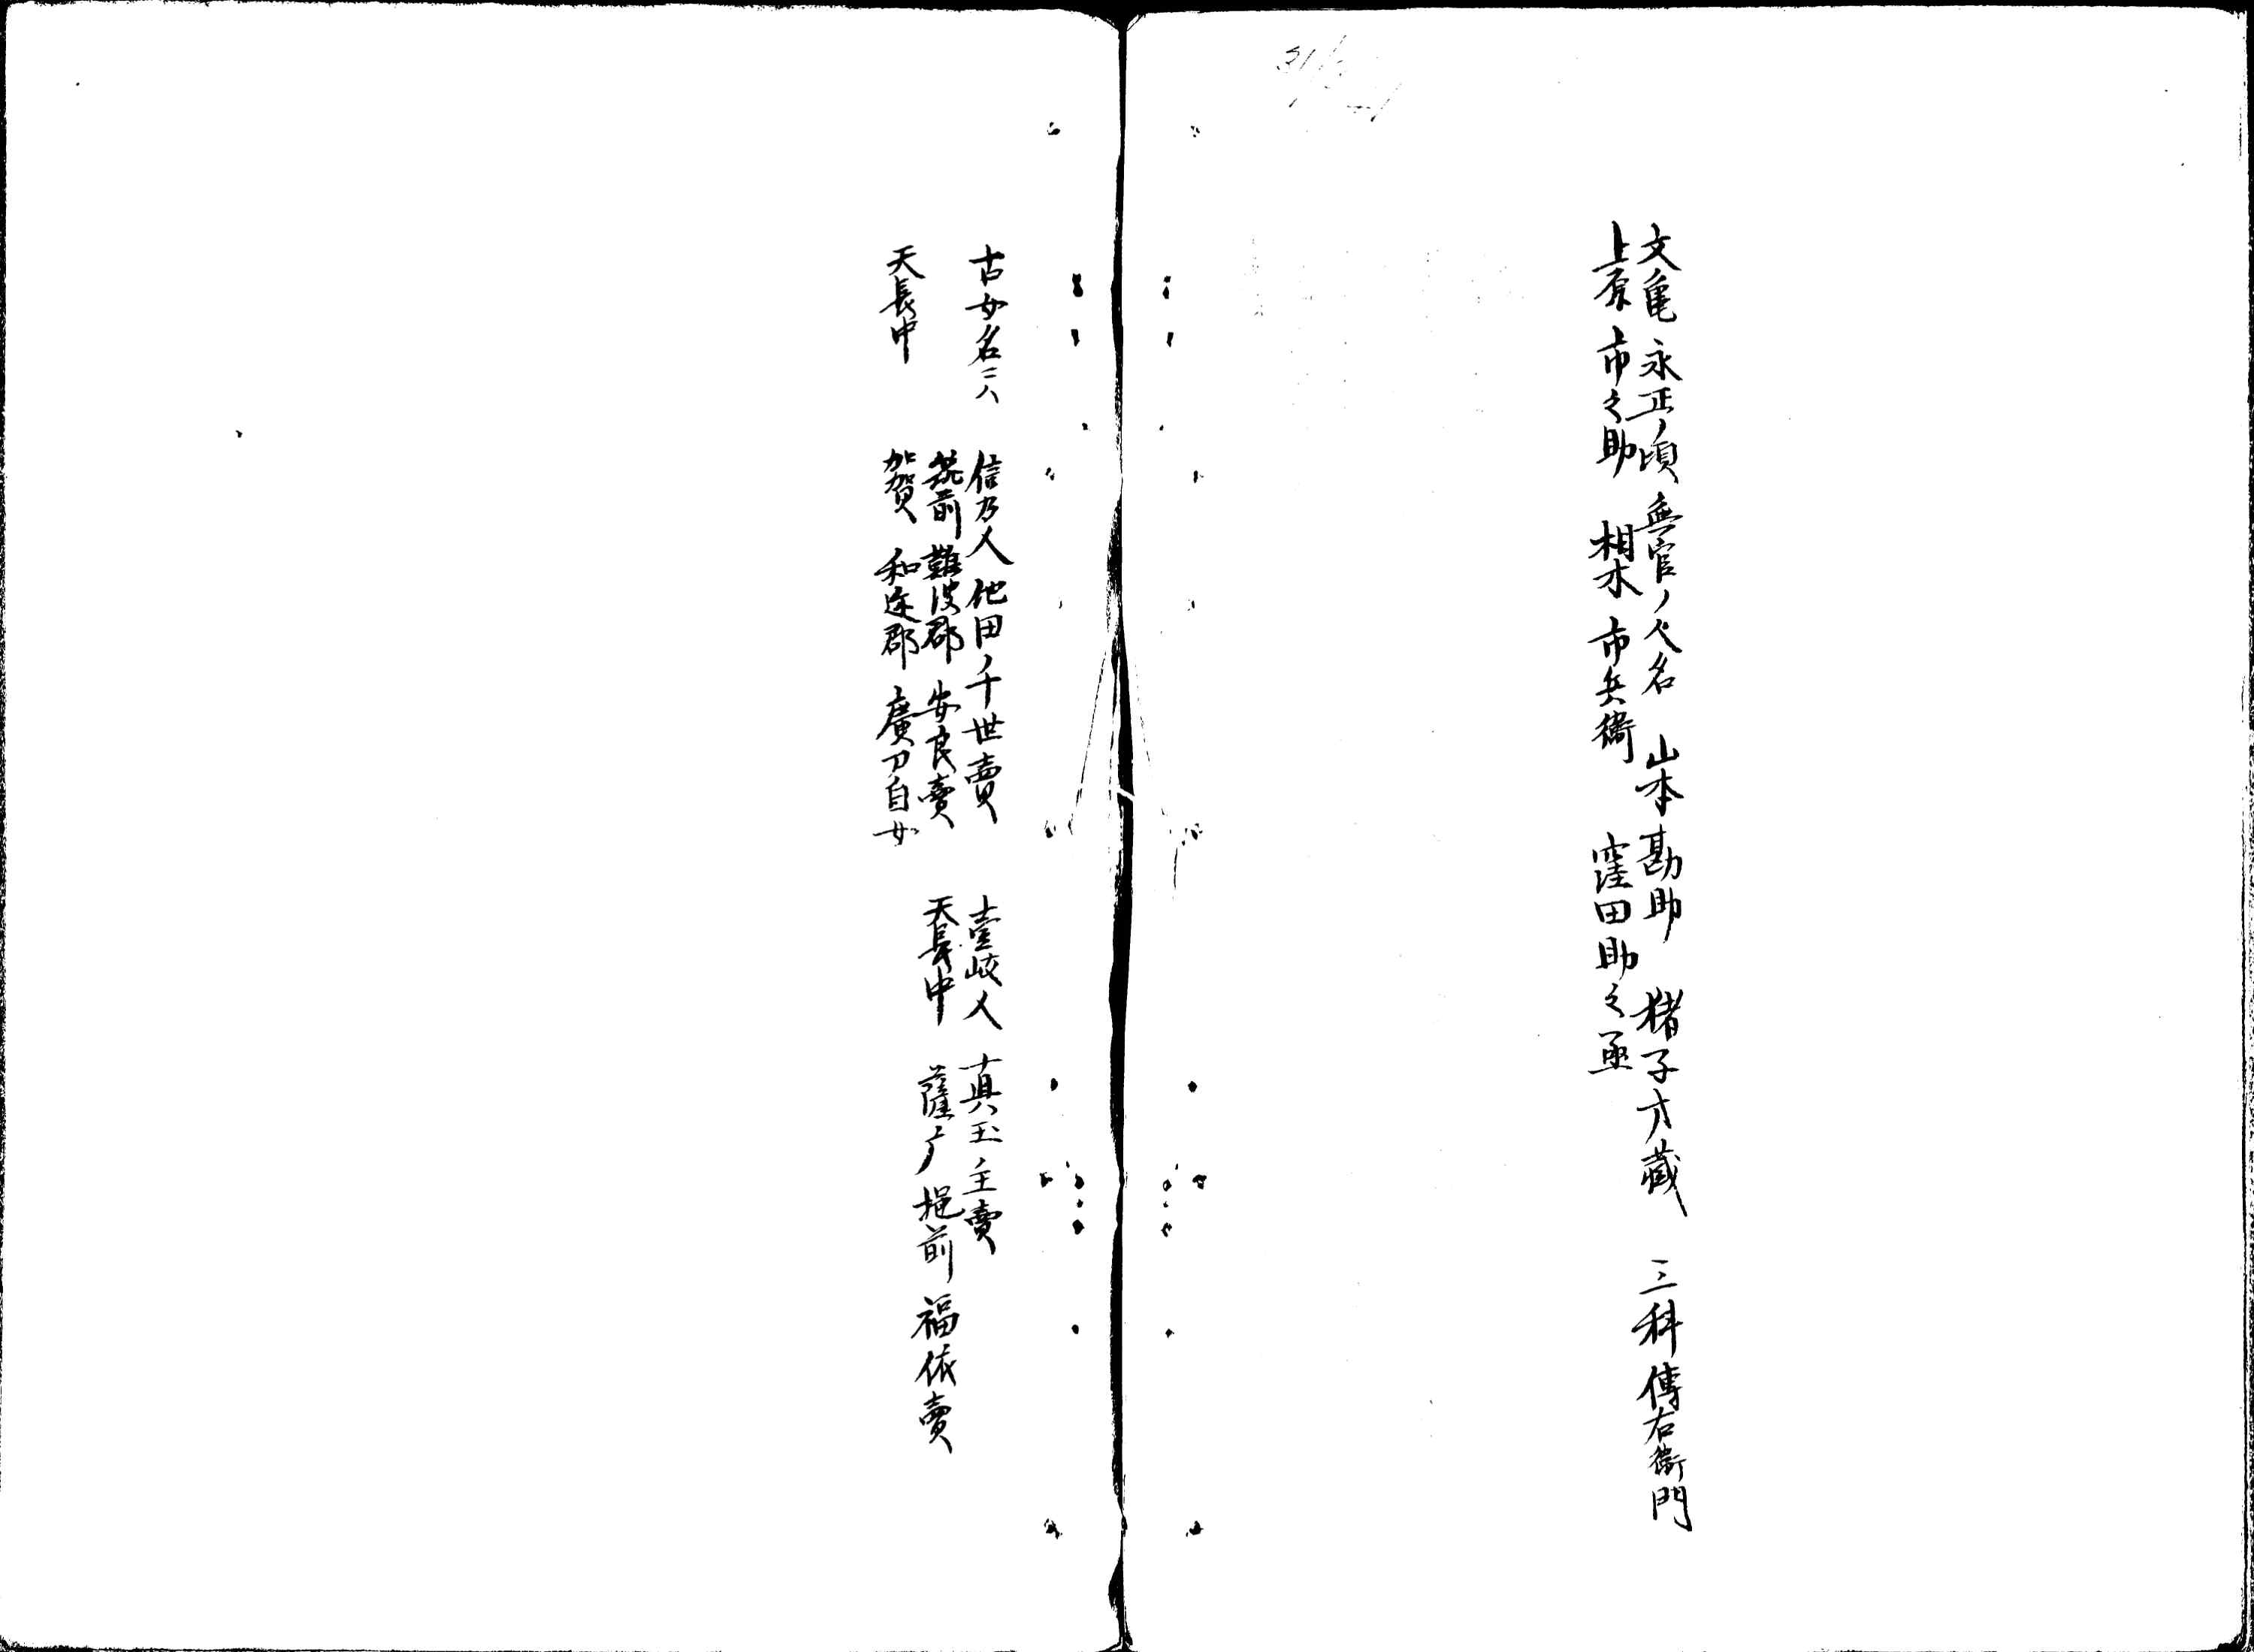 文亀 永正ノ頃 無官ノ人名 山本勘助 猪子才蔵 三科傳右衛門
上原市之助 相木市兵衛 窪田助之丞
古女名ニハ 信乃人他田ノ千世賣 壹岐人 真玉主賣
筑前 難波郡 安良賣 天長中 薩广 揖前 福依賣
天長中 加賀 和迩郡 廣刀自女